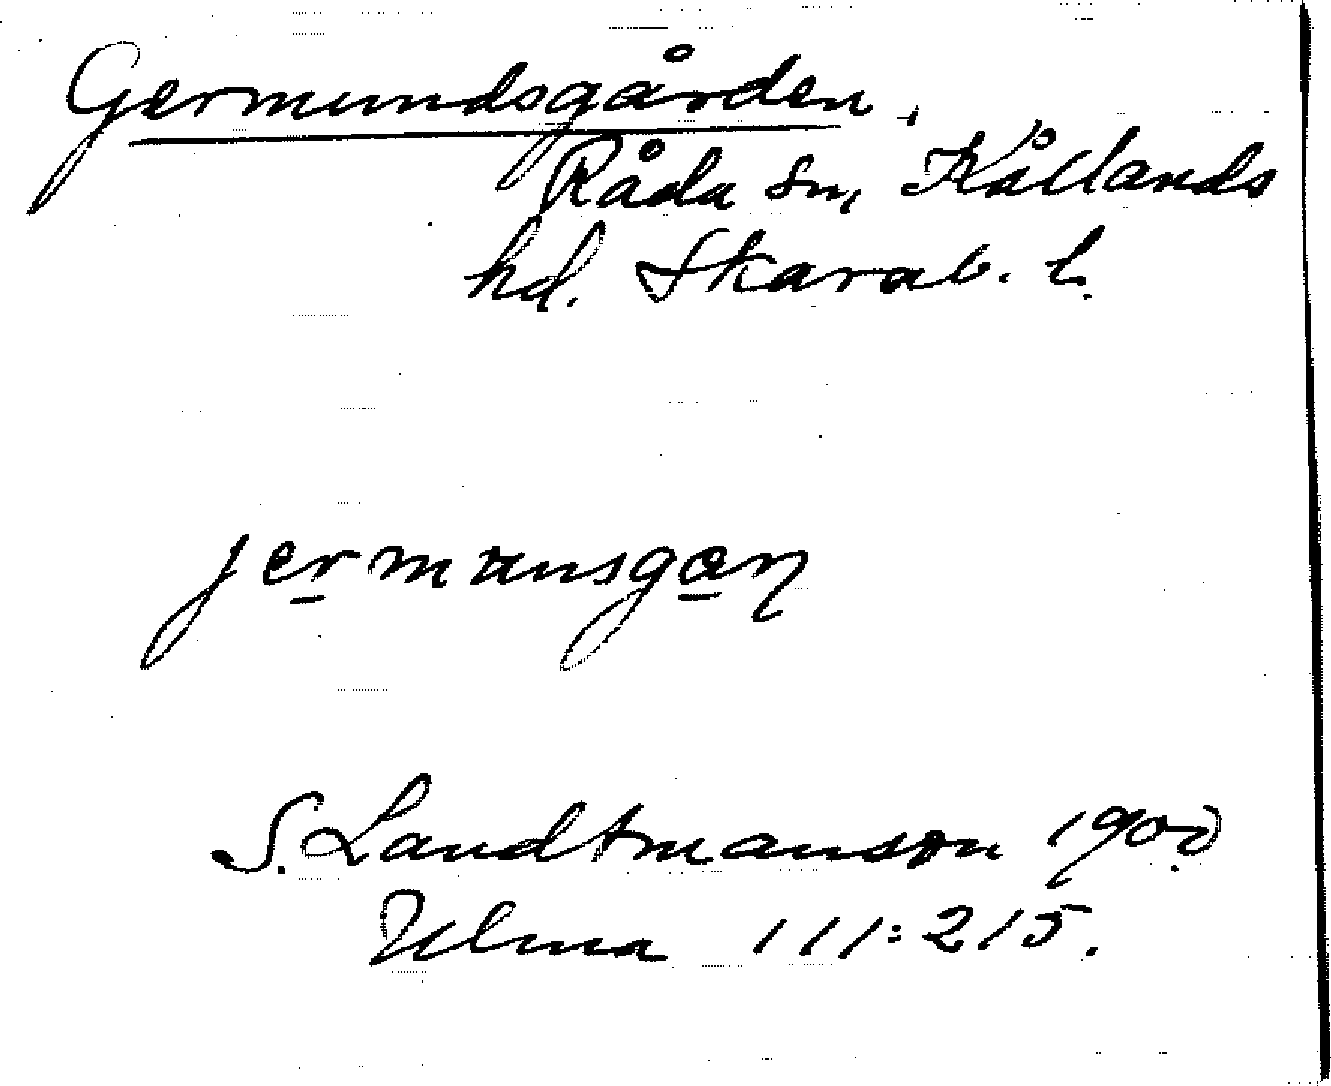 Germundsgården,
Råda sn, Kållands
hd. Skarab. l.
jermansgaɳ
S. Landtmanson 1900
Ulma 111:215.